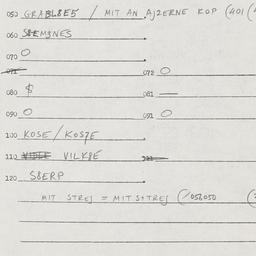 050 GRABL8E5 / MIT AN AJZERNE KOP (401 (
060 S8EMJNES
070 O
071 072 O
080 $ 081 —
090 O 091 O
100 KOSE / KOSZE
110 VIDLE VILK8E
120 S8ERP
MIT STREJ = MIT S+TREJ (1058050 (